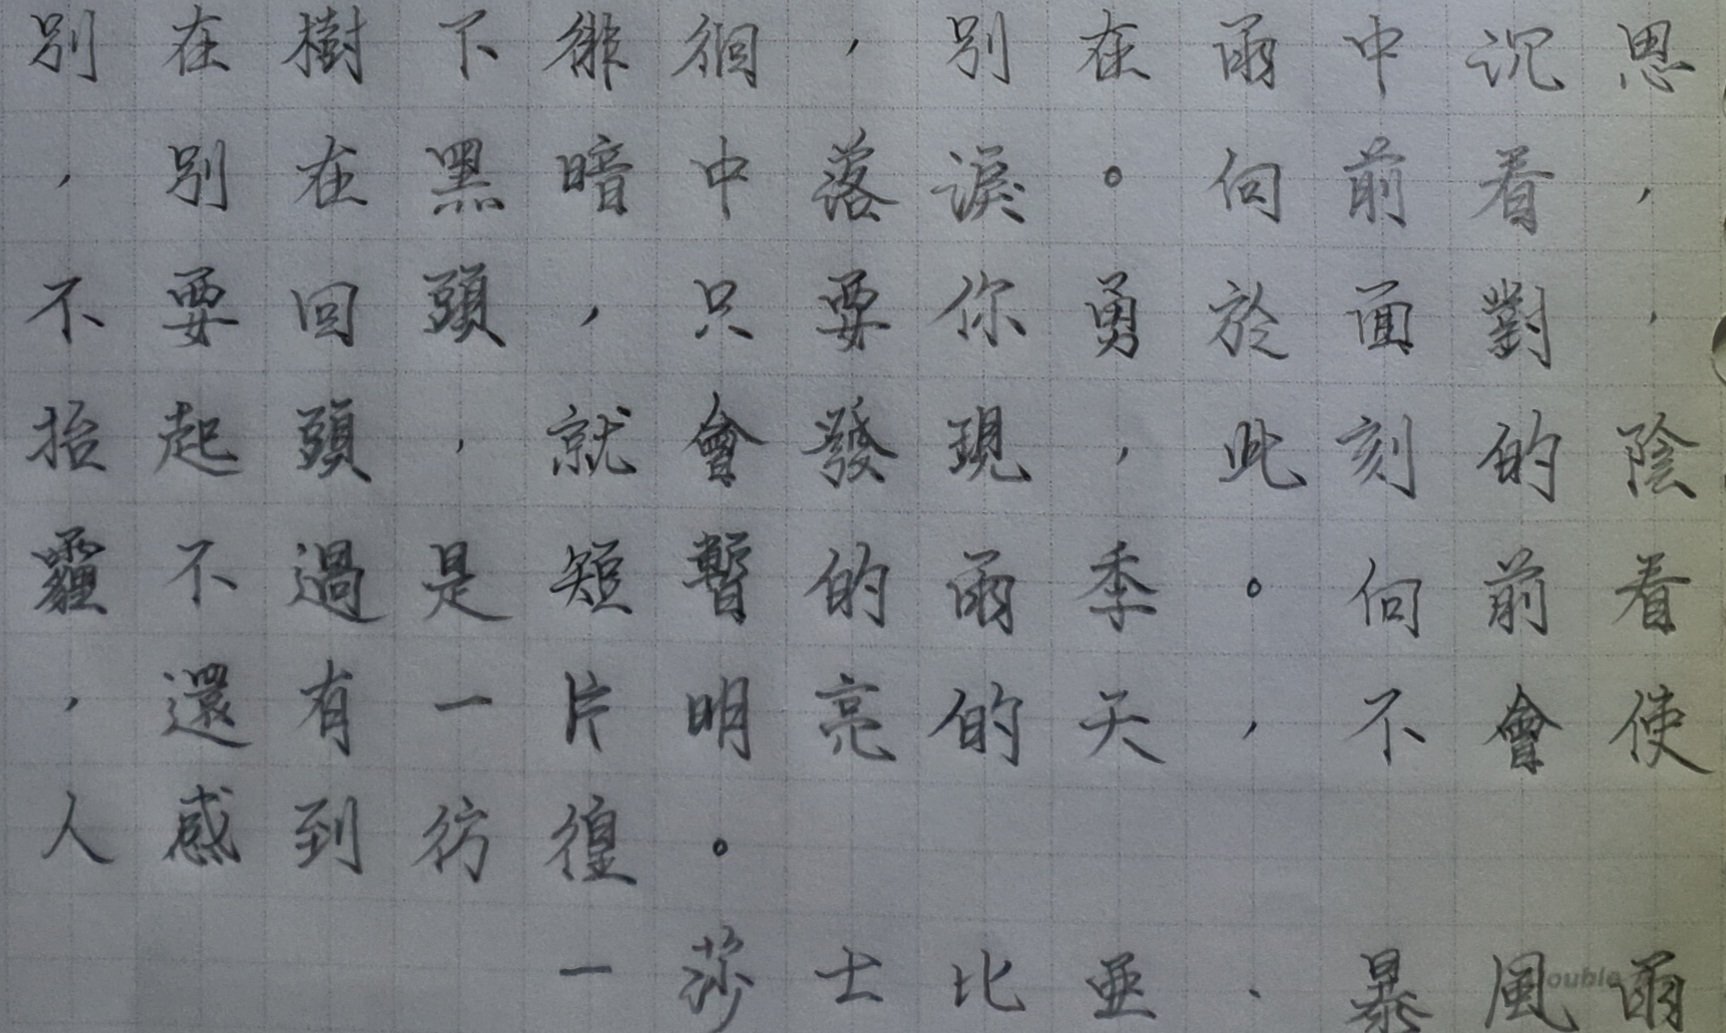 別在樹下徘徊，別在雨中沉思
，別在黑暗中落淚。向前看，
不要回頭，只要你勇於面對，
抬起頭，就會發現，此刻的陰
霾不過是短暫的雨季。向前看
，還有一片明亮的天，不會使
人感到彷徨。
一莎士比亞．暴風雨